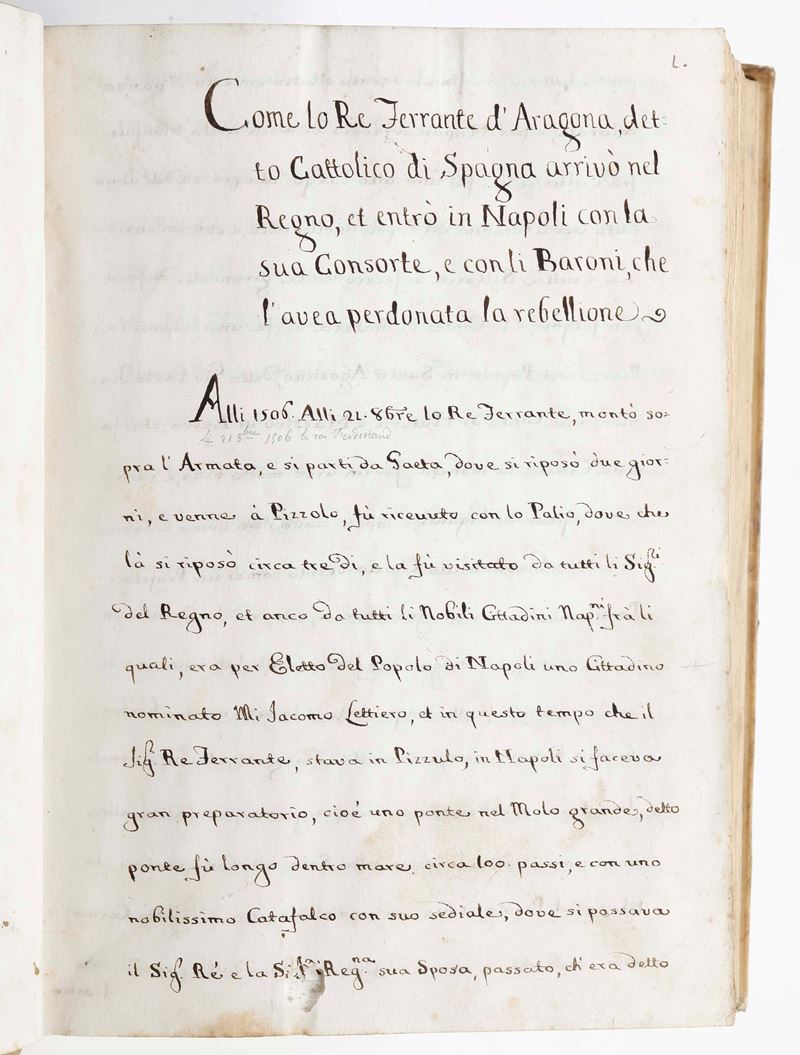 1.
Come lo Re Ferrante d'Aragona, det=
to Cattolico di Spagna arrivò nel
Regno, et entrò in Napoli con la
sua Consorte, e con li Baroni, che
l'avea perdonata la rebellione
Alli 1506. Alli 21. 8bre lo Re Ferrante, montò so=
Le 21 8bre 1506 le roi Ferdinand
pra l'Armata, e si partì da Gaeta, dove si riposò due gior=
ni, e venne à Pizzolo, fù ricevuto con lo Palio, dove che
là si riposò circa tre dì, e la fù visitato da tutti li Sigri
del Regno, et anco da tutti li Nobili Cittadini Napni. frà li
quali, era per Eletto del Popolo di Napoli uno Cittadino
nominato Mi Jacomo Lettiero, et in questo tempo che il
Sigr. Re Ferrante, stava in Pizzulo, in Napoli si faceva
gran preparatorio, cioè uno ponte nel Molo grande, detto
ponte fù longo dentro mare circa 100. passi, e con uno
nobilissimo Catafalco con suo sediale, dove si possava
il Sigr. Ré e la Sigra Regna. sua Sposa, passato, ch'era detto